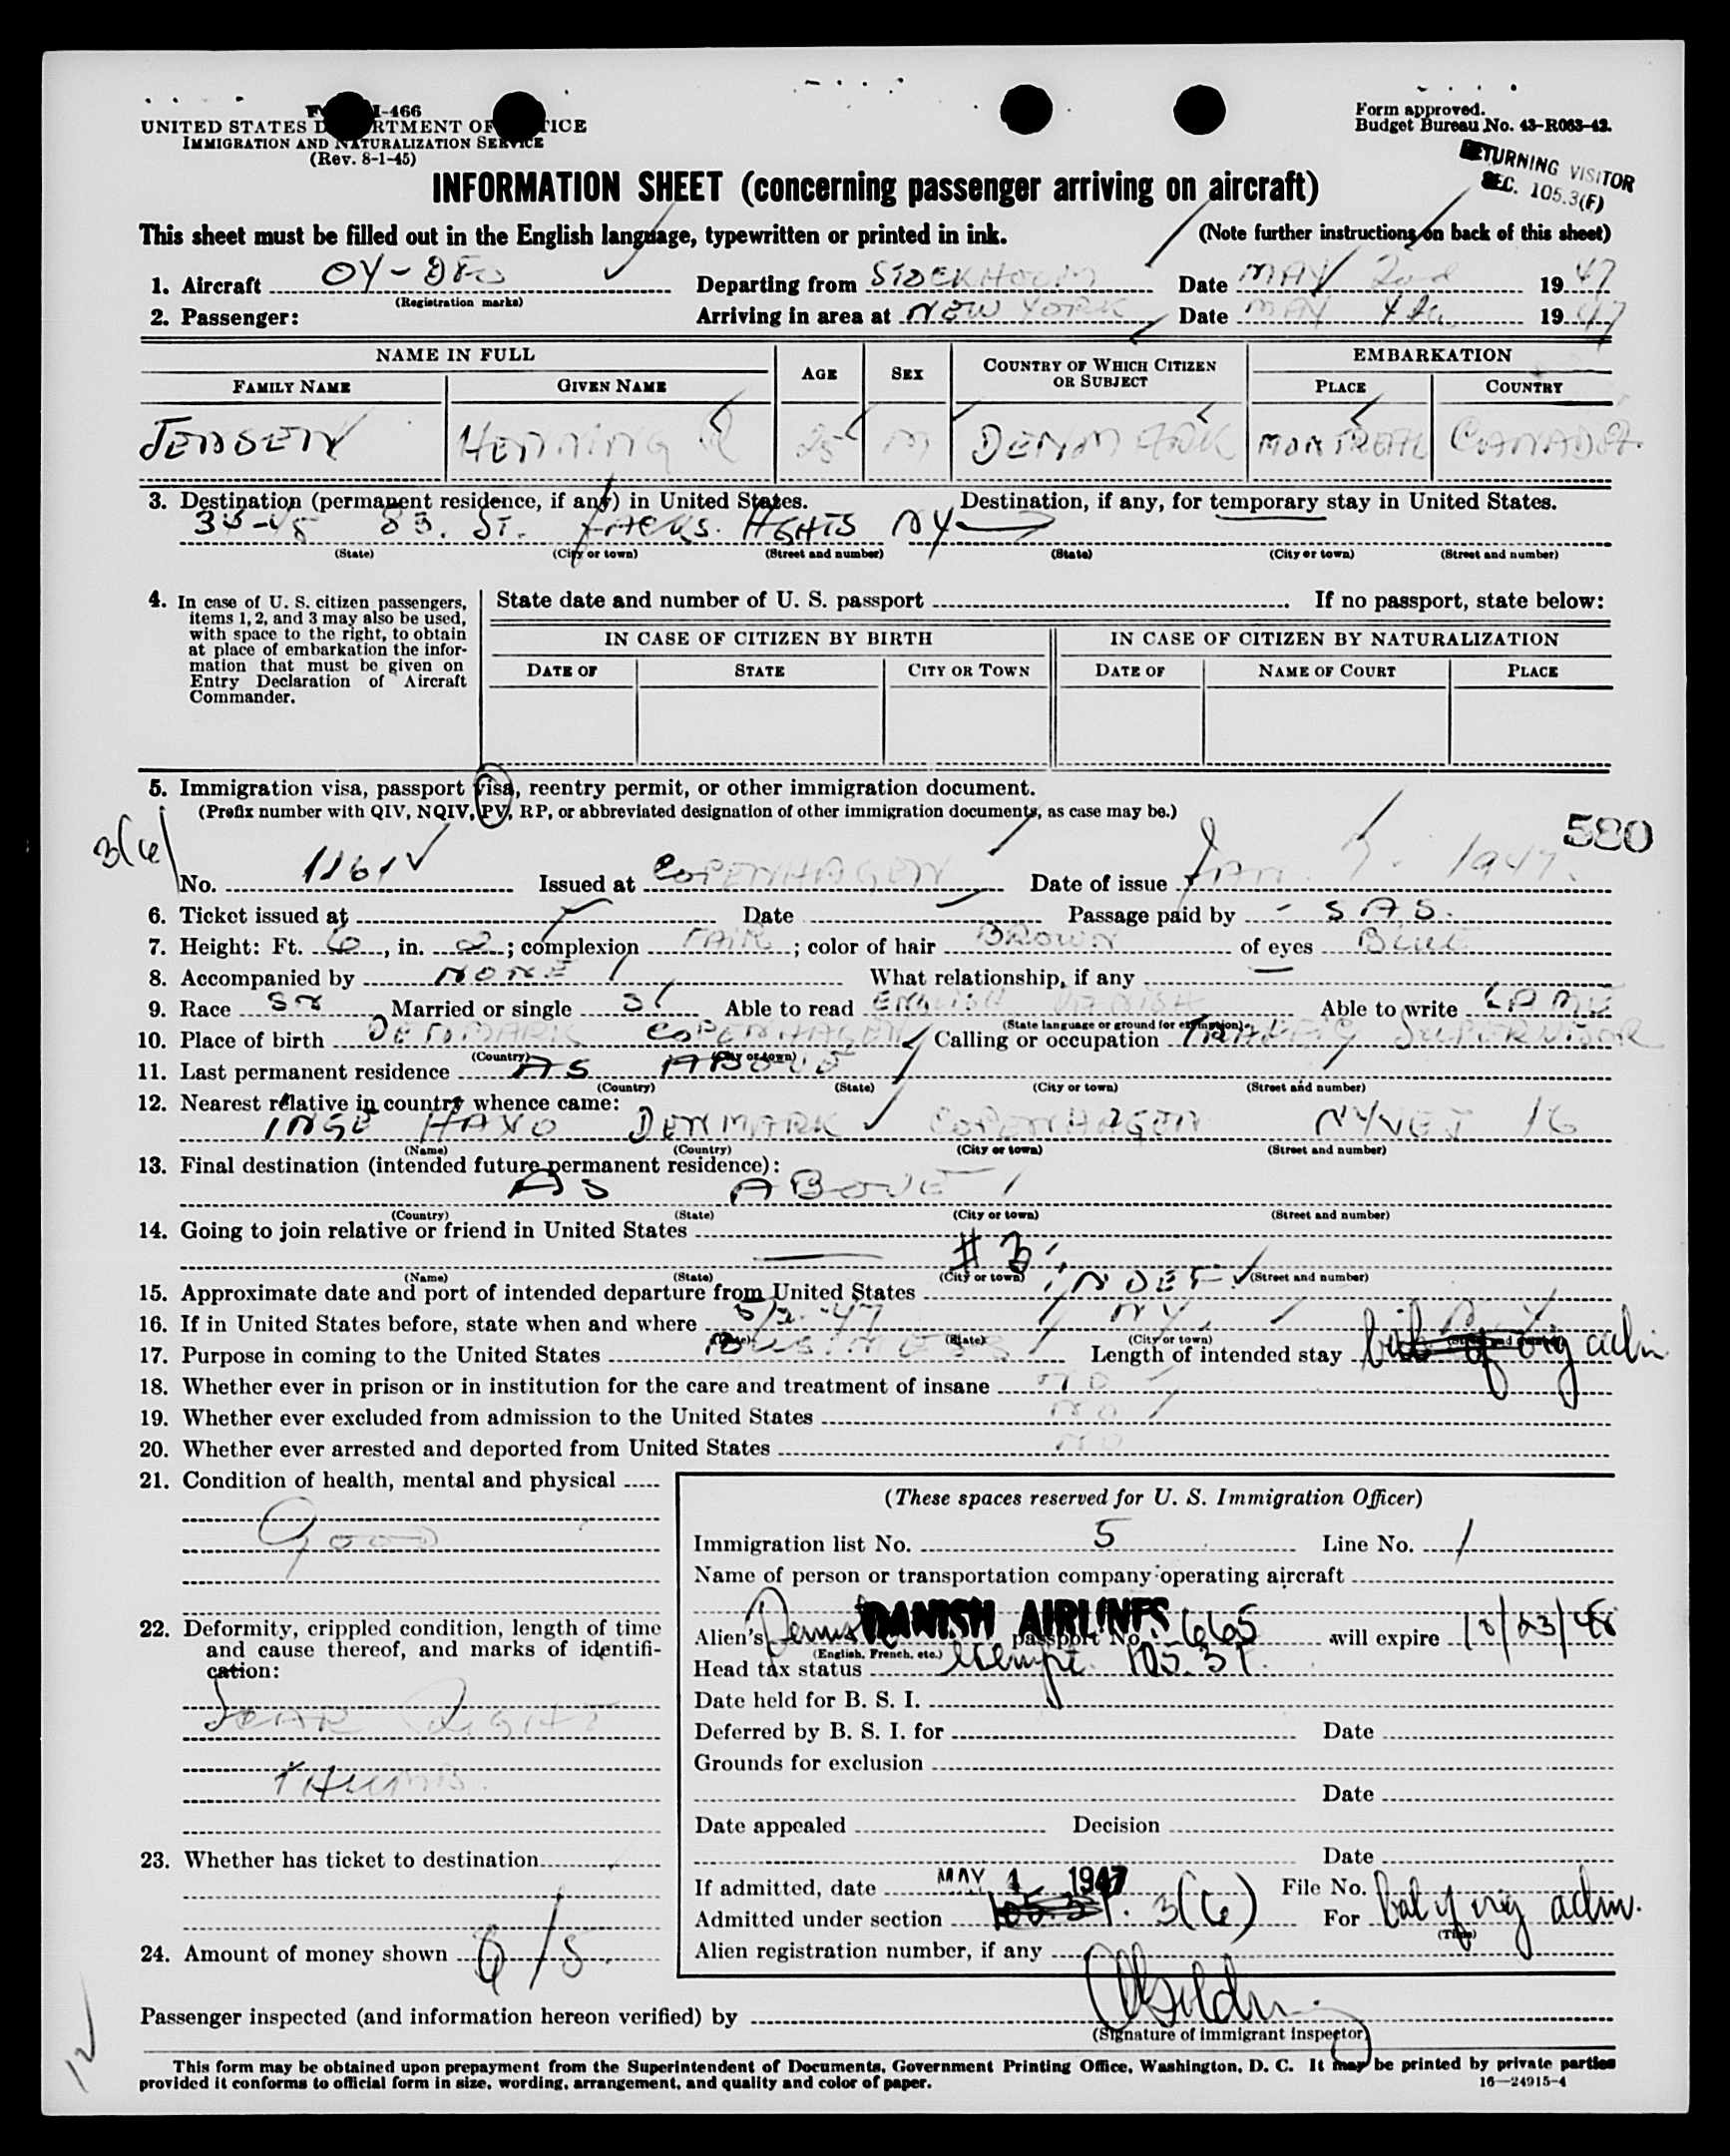 FORM I-466
UNITED STATES DEPARTMENT OF JUSTICE
IMMIGRATION AND NATURALIZATION SERVICE
(Rev. 8-1-45)
Form approved.
Budget Bureau No. 43-R063-42.
RETURNING VISITOR
SEC. 105.3(F)
INFORMATION SHEET (concerning passenger arriving on aircraft)
This sheet must be filled out in the English language, typewritten or printed in ink. (Note further instructions on back of this sheet)
1. Aircraft OY-DFO Departing from STOCKHOLM Date MAY 2nd 1947
(Registration marks)
2. Passenger: Arriving in area at NEW YORK Date MAY 4th 1947
NAME IN FULL AGE SEX COUNTRY OF WHICH CITIZEN OR SUBJECT EMBARKATION
FAMILY NAME GIVEN NAME PLACE COUNTRY
JENSEN HENNING R 25 M DENMARK MONTREAL CANADA.
3. Destination (permanent residence, if any) in United States. Destination, if any, for temporary stay in United States.
83. ST. JACKS. HGHTS NY
(State) (City or town) (Street and number) (State) (City or town) (Street and number)
4. In case of U. S. citizen passengers, items 1, 2, and 3 may also be used, with space to the right, to obtain at place of embarkation the information that must be given on Entry Declaration of Aircraft Commander.
State date and number of U. S. passport If no passport, state below:
IN CASE OF CITIZEN BY BIRTH IN CASE OF CITIZEN BY NATURALIZATION
DATE OF STATE CITY OR TOWN DATE OF NAME OF COURT PLACE
5. Immigration visa, passport visa, reentry permit, or other immigration document.
(Prefix number with QIV, NQIV, PV, RP, or abbreviated designation of other immigration documents, as case may be.)
580
3(6)
No. 1161 Issued at COPENHAGEN Date of issue JAN. 1947.
6. Ticket issued at Date Passage paid by - SAS.
7. Height: Ft. 6, in. 2; complexion FAIR; color of hair BROWN of eyes BLUE
8. Accompanied by NONE What relationship, if any —
9. Race SN Married or single S Able to read ENGLISH DANISH Able to write SAME
(State language or ground for exemption)
10. Place of birth DENMARK COPENHAGEN Calling or occupation TRAFFIC SUPERVISOR
(Country) (City or town)
11. Last permanent residence AS ABOVE
(Country) (State) (City or town) (Street and number)
12. Nearest relative in country whence came:
INGE HAXO DENMARK COPENHAGEN NYVEJ 16
(Name) (Country) (City or town) (Street and number)
13. Final destination (intended future permanent residence):
AS ABOVE
(Country) (State) (City or town) (Street and number)
14. Going to join relative or friend in United States
— # 3
(Name) (State) (City or town) (Street and number)
15. Approximate date and port of intended departure from United States INDEF.
16. If in United States before, state when and where NY
(Date) (State) (City or town) (Street and number)
17. Purpose in coming to the United States BUSINESS Length of intended stay bal of orig adm
18. Whether ever in prison or in institution for the care and treatment of insane NO
19. Whether ever excluded from admission to the United States NO
20. Whether ever arrested and deported from United States NO
21. Condition of health, mental and physical
GOOD
22. Deformity, crippled condition, length of time and cause thereof, and marks of identification:
SCAR RIGHT
THUMB.
23. Whether has ticket to destination
24. Amount of money shown
(These spaces reserved for U. S. Immigration Officer)
Immigration list No. 5 Line No. 1
Name of person or transportation company operating aircraft
DANISH AIRLINES
Alien's Danish passport No. 665 will expire 10/23/48
(English, French, etc.)
Head tax status Exempt. 105.31.
Date held for B. S. I.
Deferred by B. S. I. for Date
Grounds for exclusion
Date
Date appealed Decision
Date
If admitted, date MAY 4 1947 File No.
Admitted under section 105.31. 3(6) For bal of orig adm.
(Time)
Alien registration number, if any
Passenger inspected (and information hereon verified) by
(Signature of immigrant inspector)
12
This form may be obtained upon prepayment from the Superintendent of Documents, Government Printing Office, Washington, D. C. It may be printed by private parties
provided it conforms to official form in size, wording, arrangement, and quality and color of paper.
16—24915-4